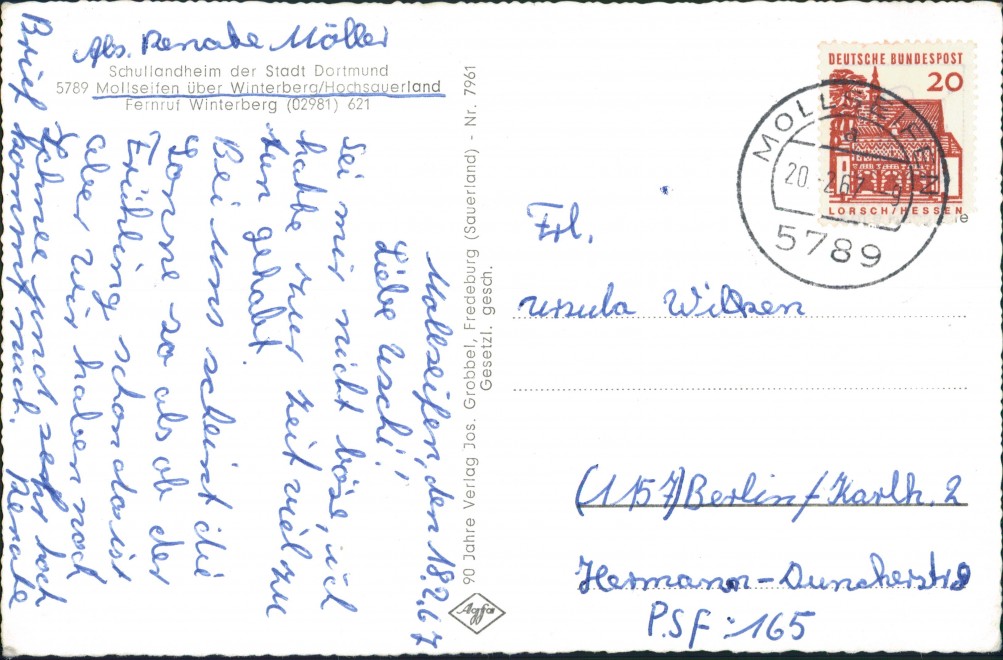 Abs. Renate Möller
Schullandheim der Stadt Dortmund
5789 Mollseifen über Winterberg/Hochsauerland
Fernruf Winterberg (02981) 621
Mollseifen, den 18.2.67
Liebe Uschi!
Sei mir nicht böse, ich
hatte zur Zeit viel zu
tun gehabt.
Bei uns scheint die
Sonne so als ob der
Frühling schon da ist
aber wir haben noch
Schnee und sehr hoch
Brief kommt nach. Renate
90 Jahre Verlag Jos. Grobbel, Fredeburg (Sauerland) - Nr. 7961
Gesetzl. gesch.
Agfa
DEUTSCHE BUNDESPOST
20
LORSCH/HESSEN
MOLLSEIFEN
a
20.-2.67.-9
5789
Frl.
Ursula Wilken
(1157) Berlin/Karlh. 2
Hermann-Dunckerstr
PSF: 165